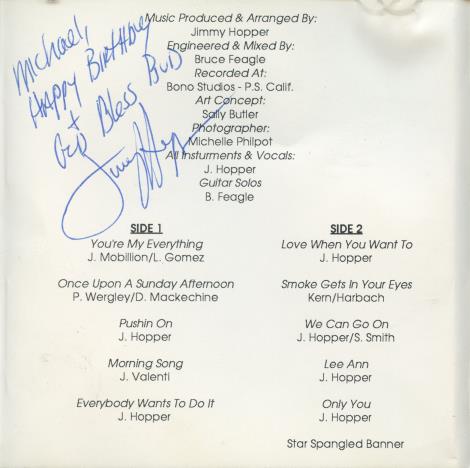 Michael,
Happy Birthday
+
God Bless Bud
Jimmy Hopper
Music Produced & Arranged By:
Jimmy Hopper
Engineered & Mixed By:
Bruce Feagle
Recorded At:
Bono Studios - P.S. Calif.
Art Concept:
Sally Butler
Photographer:
Michelle Philpot
All Insturments & Vocals:
J. Hopper
Guitar Solos
B. Feagle
SIDE 1
You're My Everything
J. Mobillion/L. Gomez
Once Upon A Sunday Afternoon
P. Wergley/D. Mackechine
Pushin On
J. Hopper
Morning Song
J. Valenti
Everybody Wants To Do It
J. Hopper
SIDE 2
Love When You Want To
J. Hopper
Smoke Gets In Your Eyes
Kern/Harbach
We Can Go On
J. Hopper/S. Smith
Lee Ann
J. Hopper
Only You
J. Hopper
Star Spangled Banner